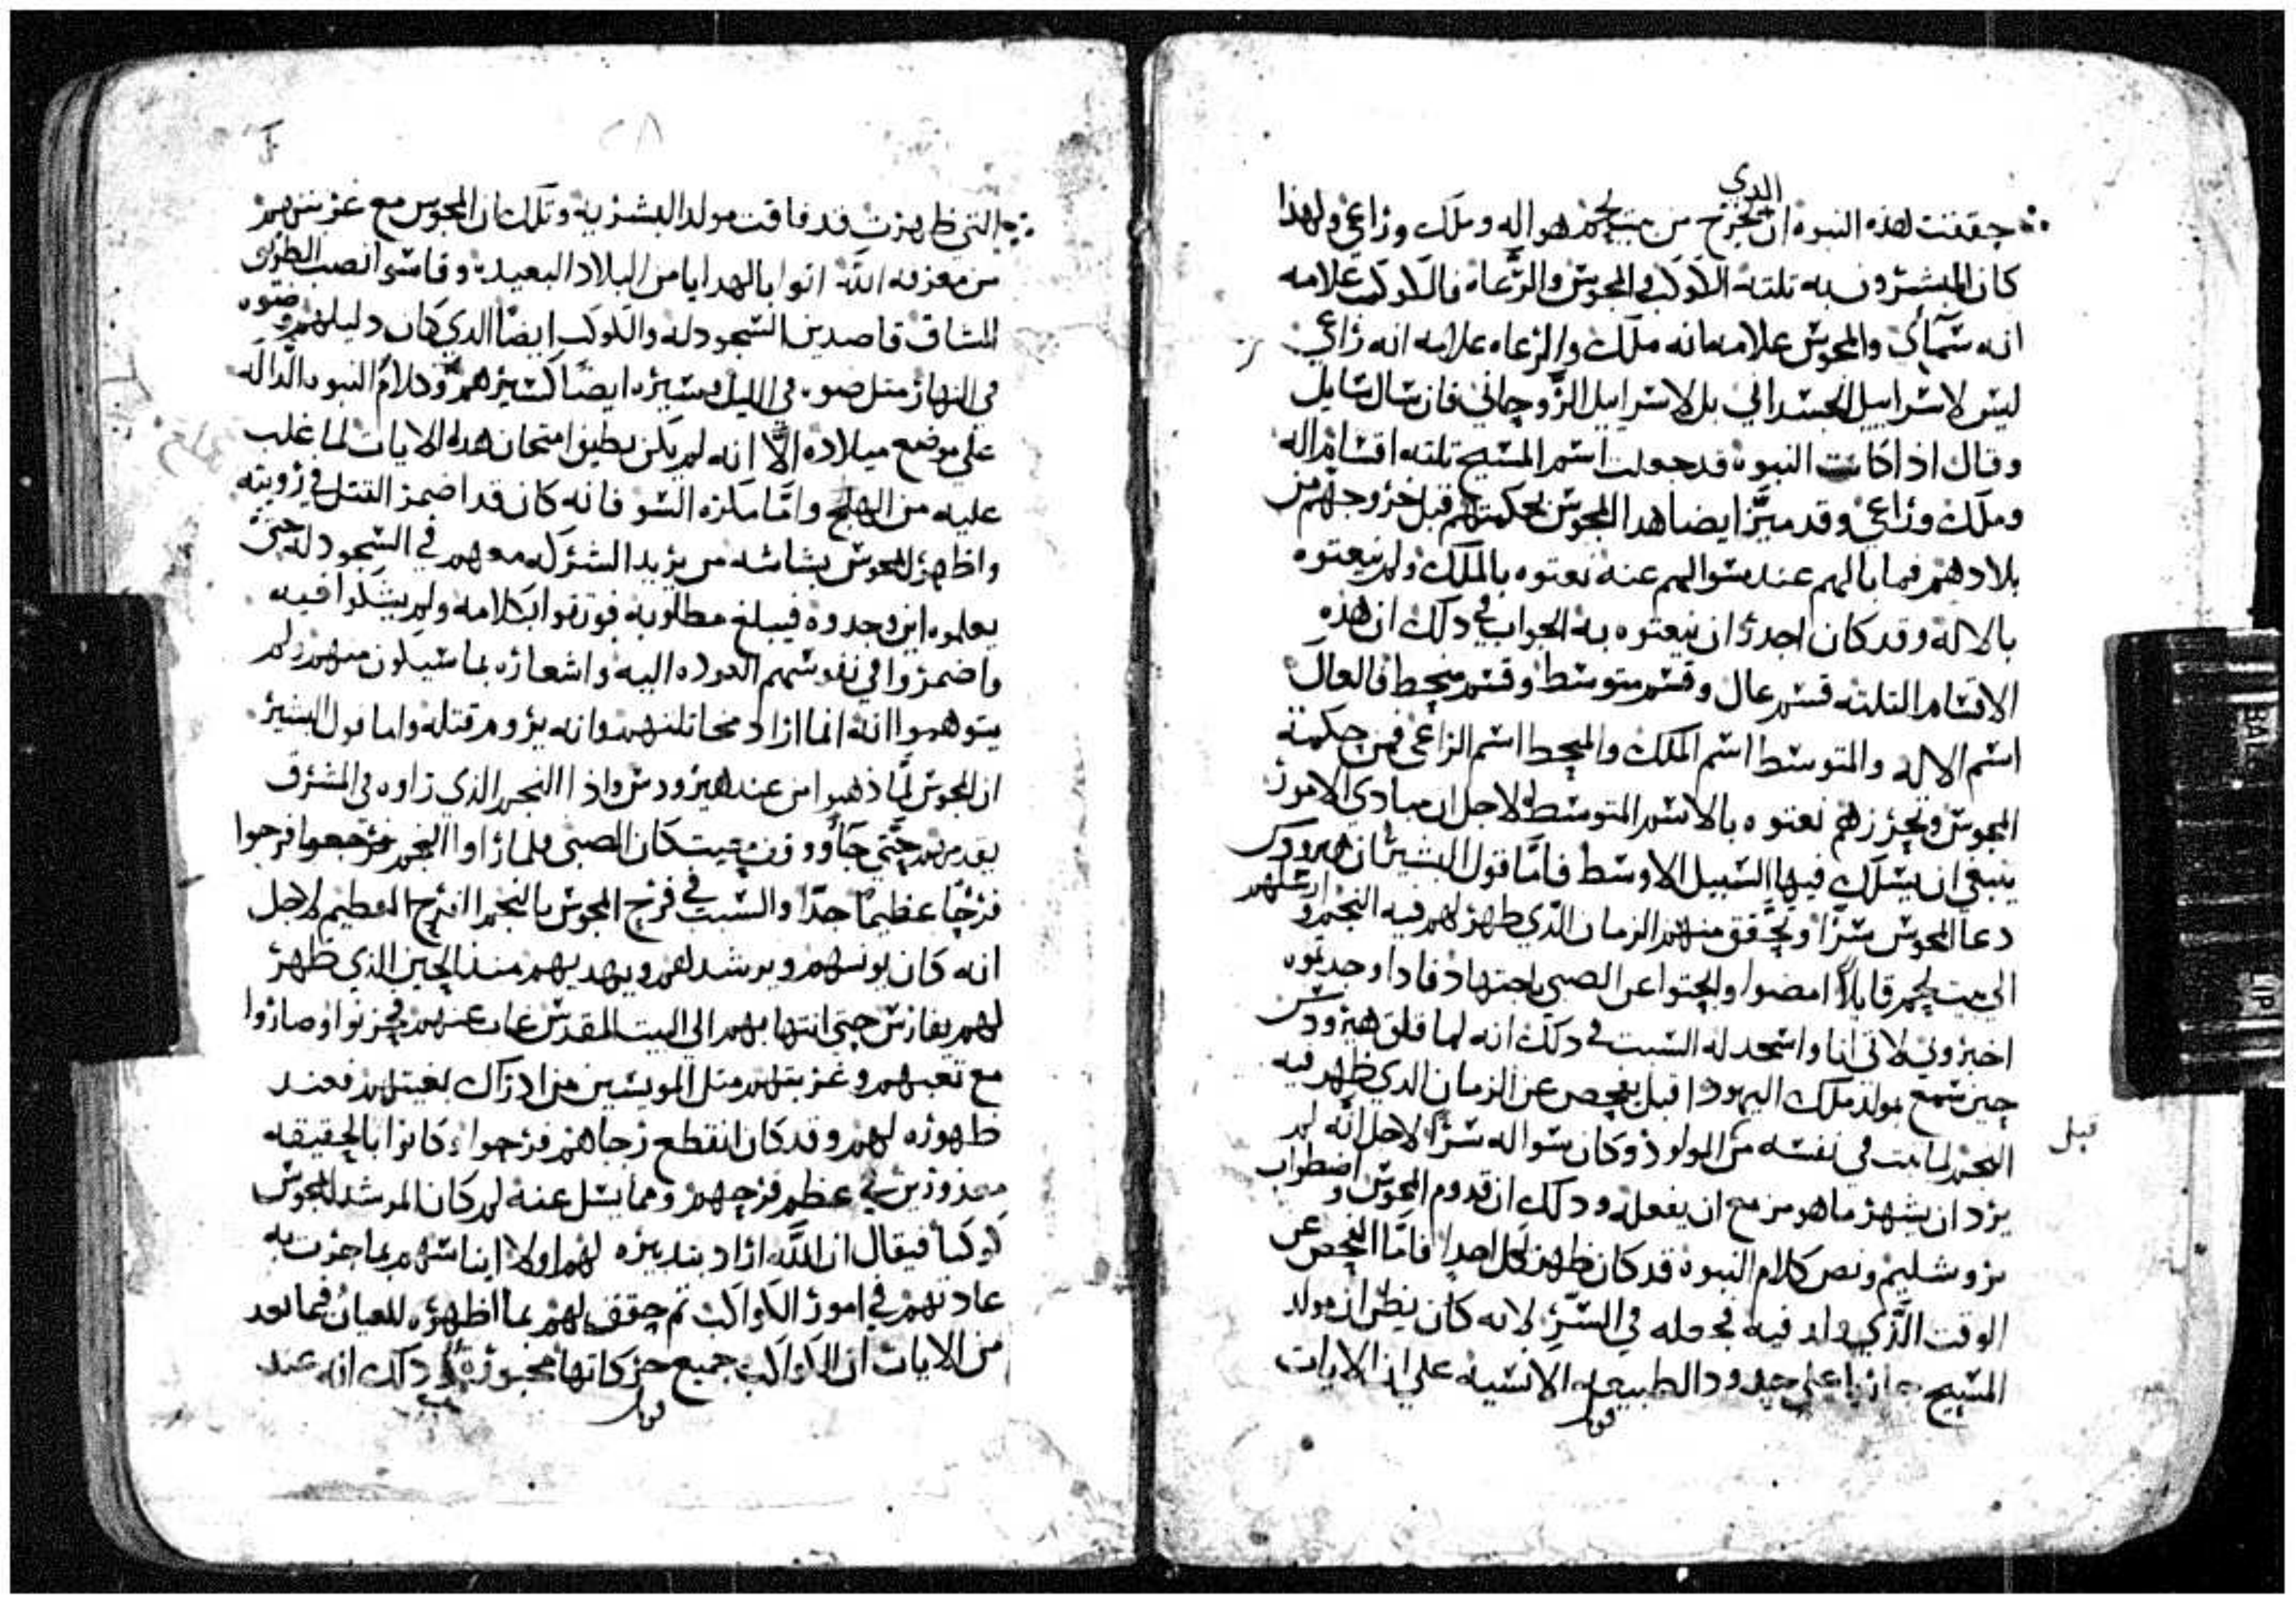 حققت هذه النبوه ان الدي يخرج من بيت لحم هو اله وملك وراعي ولهذا
كان المبشرون به تلته الكوكب والمجوس والرعاه فالكوكب علامه
انه سمآئي والمجوس علامه انه ملك والرعاه علامه انه راعي
ليس لاسراييل الجسداني بل لاسراييل الروحاني فان سال سايل
وقال اذا كانت النبوه قد جعلت اسم المسيح تلته اقسام اله
وملك وراعي وقد ميز ايضا هدا المجوس بحكمتهم قبل خروجهم من
بلادهم فما بالهم عند سوالهم عنه نعتوه بالملك ولم ينعتوه
بالاله وقد كان اجدر ان ينعتوه به الجواب في دلك ان هذه
الاقسام التلته قسم عال وقسم متوسط وقسم منحط فالعال
اسم الاله والمتوسط اسم الملك والمنحط اسم الراعي فمن حكمة
المجوس وتحررهم نعتوه بالاسم المتوسط لاجل ان مبادي الامور
ينبغي ان يسلك فيها السبيل الاوسط فامّا قول البشير ان هيرودس
دعا المجوس سرًا وتحقق منهم الزمان الذي ظهر لهم فيه النجم وارسلهم
الى بيت لحم قايلاً امضوا وابحتوا عن الصبي باجتهاد فادا وجدتموه
اخبروني لاتي انا واسجد له السبب في دلك انه لما قلق هيرودس
حين سمع بمولد ملك اليهود اقبل يفحص عن الزمان الدي ظهر فيه
النجم لما بيت في نفسه من قبل المولود وكان سواله سرًا لاجل انّه لم
يرد ان يشهر ما هو مزمع ان يفعله ودلك ان قدوم المجوس واضطراب
يروشليم ونص كلام النبوه قد كان ظهر لكل احدٍ فامّا الفحص عن
الوقت الّذي ولد فيه فجعله في السّرِ لانه كان يظن ان مولد
المسيح جاريا على حدود الطبيعه الانسيه على ان الايات
التي ظهرت قد فاقت مولد البشريه وتلك ان المجوس مع غربتهم
من معرفه اللّه اتوا بالهدايا من البلاد البعيده وقاسوا نصب الطريق
المشاق قاصدين السجود له والكوكب ايضًا الدي كان دليلهم وضوه
في النهار متل ضوه في الليل ومسيره ايضًا كسيرهم وكلام النبوه الدّاله
على موضع ميلاده الاّ انه لم يكن يطيق امتحان هده الايات لما غلب
عليه من الهلع وامّا مكره السو فانه كان قد اضمر القتل في رويته
واظهر للمجوس بشاشه من يريد الشركه معهم في السجود له حتى
يعلموه اين وجدوه فيبلغ مطلوبه فوتقوا بكلامه ولم يشكوا فيه
واضمروا في نفوسهم العوده اليه واشعاره بما سيكون منهم ولم
يتوهموا انه انما اراد مخاتلتهم وانه يروم قتله واما قول البشير
ان المجوس لمّا ذهبوا من عند هيرودس واذا النجم الذي راوه في المشرق
يقدمهم حتّى جآ ووقف حيت كان الصبي فلما راوا النجم فرحوا
فرحًا عظيمًا جدًا والسبب في فرح المجوس بالنجم الفرح العظيم لاجل
انه كان يونسهم ويرشدهم ويهديهم منذ الحين الذي ظهر
لهم بفارس حتى انتها بهم الى البيت المقدس غاب عنهم فحزنوا وصاروا
مع تعبهم وغربتهم متل المويسين من ادراك بغيتهم فعند
ظهوره لهم وقد كان انقطع رجاهم فرحوا وكانوا بالحقيقه
معذورين في عظم فرحهم ومما يسل عنه لم كان المرشد للمجوس
كوكبًا فيقال ان اللّه اراد بتدبيره لهم اولا ايناسهم بما جرت به
عادتهم في امور الكواكب تم حقق لهم بما اظهره للعيان فيما بعد
من الايات ان الكواكب جميع حركاتها مجبوره ودلك انه عند
قوبل